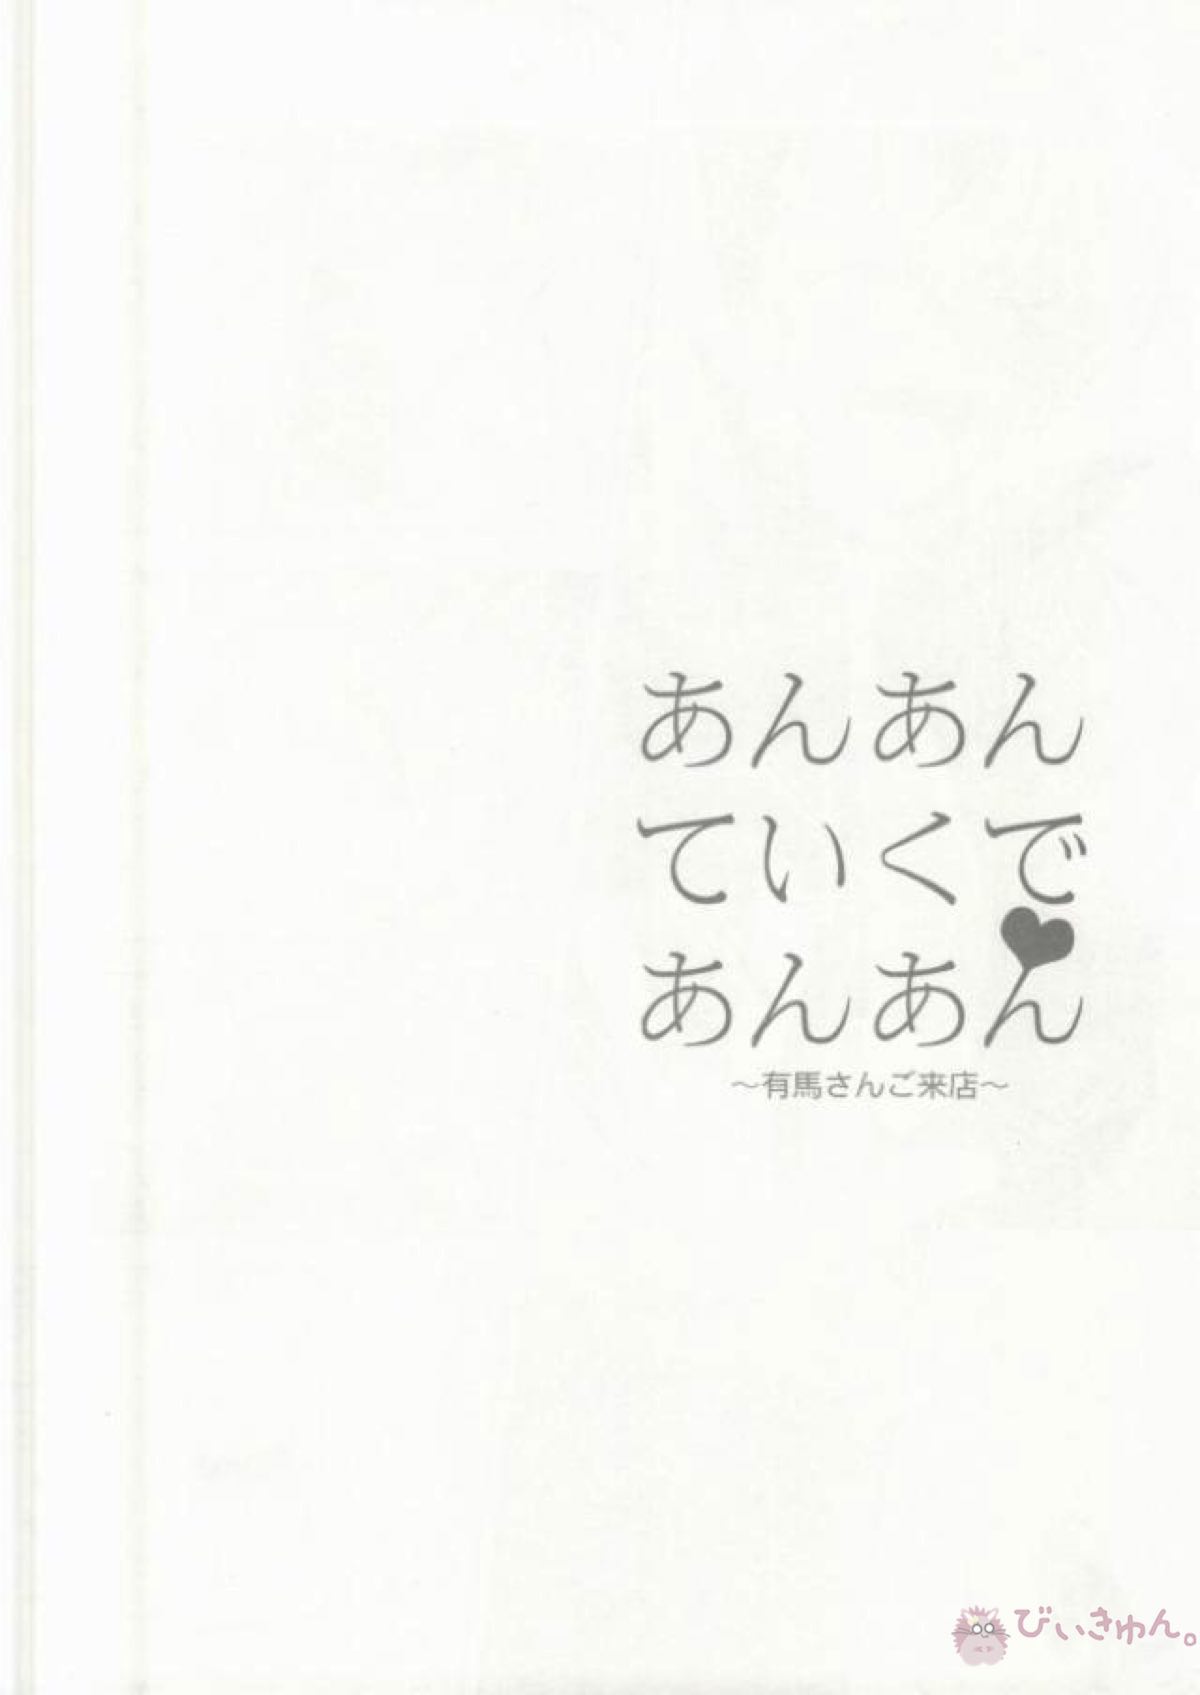 あんあん
ていくで
あんあん
～有馬さんご来店～
びぃきゅん。